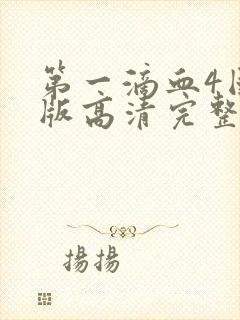 第一滴血4国
版高清完整
揚揚